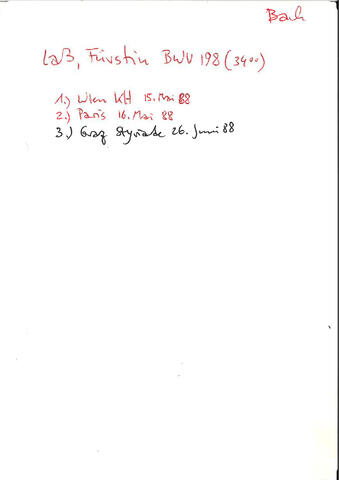 Bach
Laß, Fürstin BWV 198 (34°°)
1.) Wien KH 15. Mai 88
2.) Paris 16. Mai 88
3.) Graz Styriarte 26. Juni 88